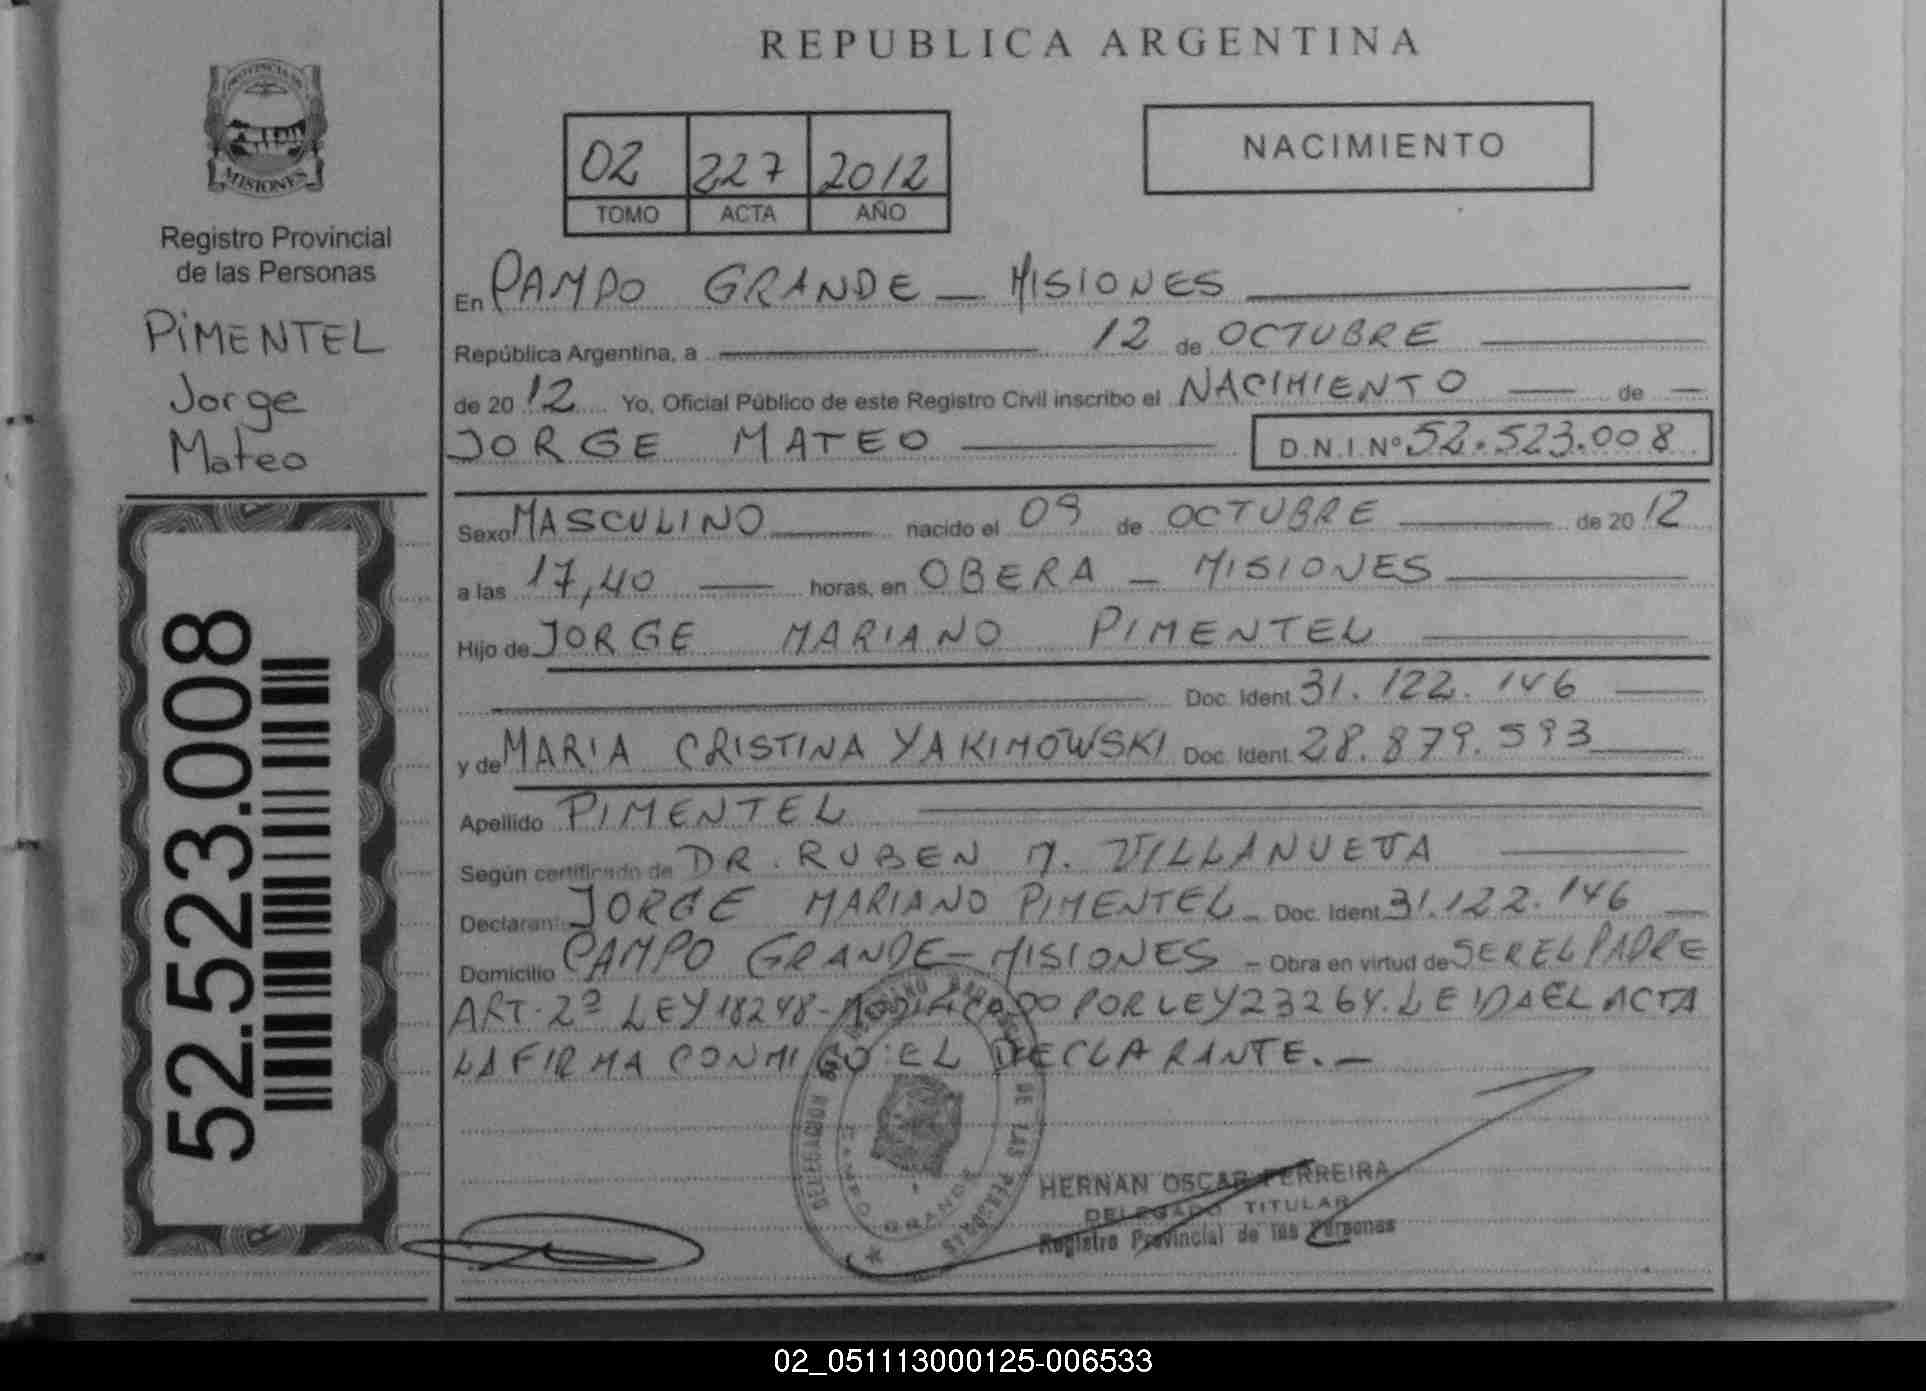 REPUBLICA ARGENTINA
PROVINCIA DE
MISIONES
Registro Provincial
de las Personas
PIMENTEL
Jorge
Mateo
52.523.008
02 227 2012
TOMO ACTA AÑO
NACIMIENTO
En CAMPO GRANDE — MISIONES
República Argentina, a 12 de OCTUBRE
de 2012 Yo, Oficial Público de este Registro Civil inscribo el NACIMIENTO de
JORGE MATEO D.N.I.Nº 52.523.008
Sexo MASCULINO nacido el 09 de OCTUBRE de 2012
a las 17,40 horas, en OBERA — MISIONES
Hijo de JORGE MARIANO PIMENTEL
Doc. Ident. 31.122.146
y de MARIA CRISTINA YAKIMOWSKI Doc. Ident. 28.879.593
Apellido PIMENTEL
Según certificado de DR. RUBEN M. VILLANUEVA
Declarante JORGE MARIANO PIMENTEL - Doc. Ident. 31.122.146
Domicilio CAMPO GRANDE - MISIONES - Obra en virtud de SER EL PADRE
ART. 2º LEY 18248 - MODIFICADO POR LEY 23264. LEIDA EL ACTA
LA FIRMA CONMIGO EL DECLARANTE. —
DE LAS PERSONAS
CAMPO GRANDE
HERNAN OSCAR FERREIRA
DELEGADO TITULAR
Registro Provincial de las Personas
02_051113000125-006533